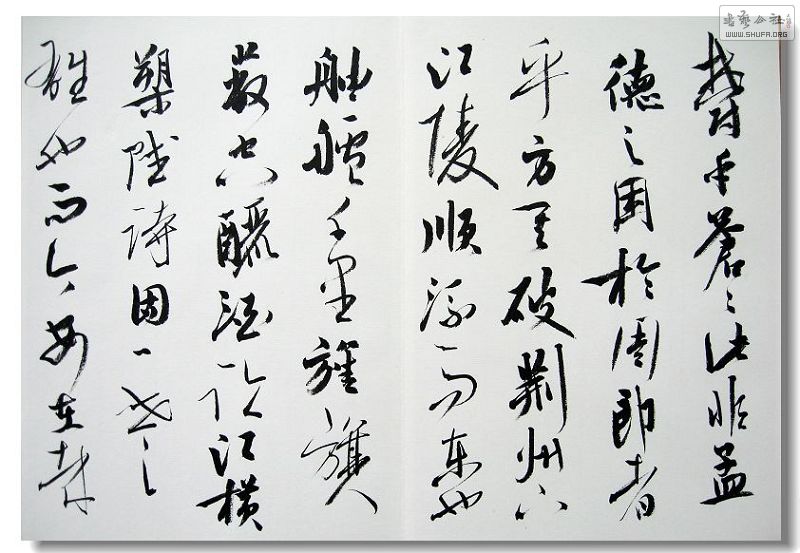 鬱乎蒼〻此非孟
德之困於周郎者
乎方其破荆州下
江陵順流而東也
舳艫千里旌旗
蔽空釃酒臨江横
槊賦詩固一世之
雄也而今安在哉
書藝公社
WWW.SHUFA.ORG